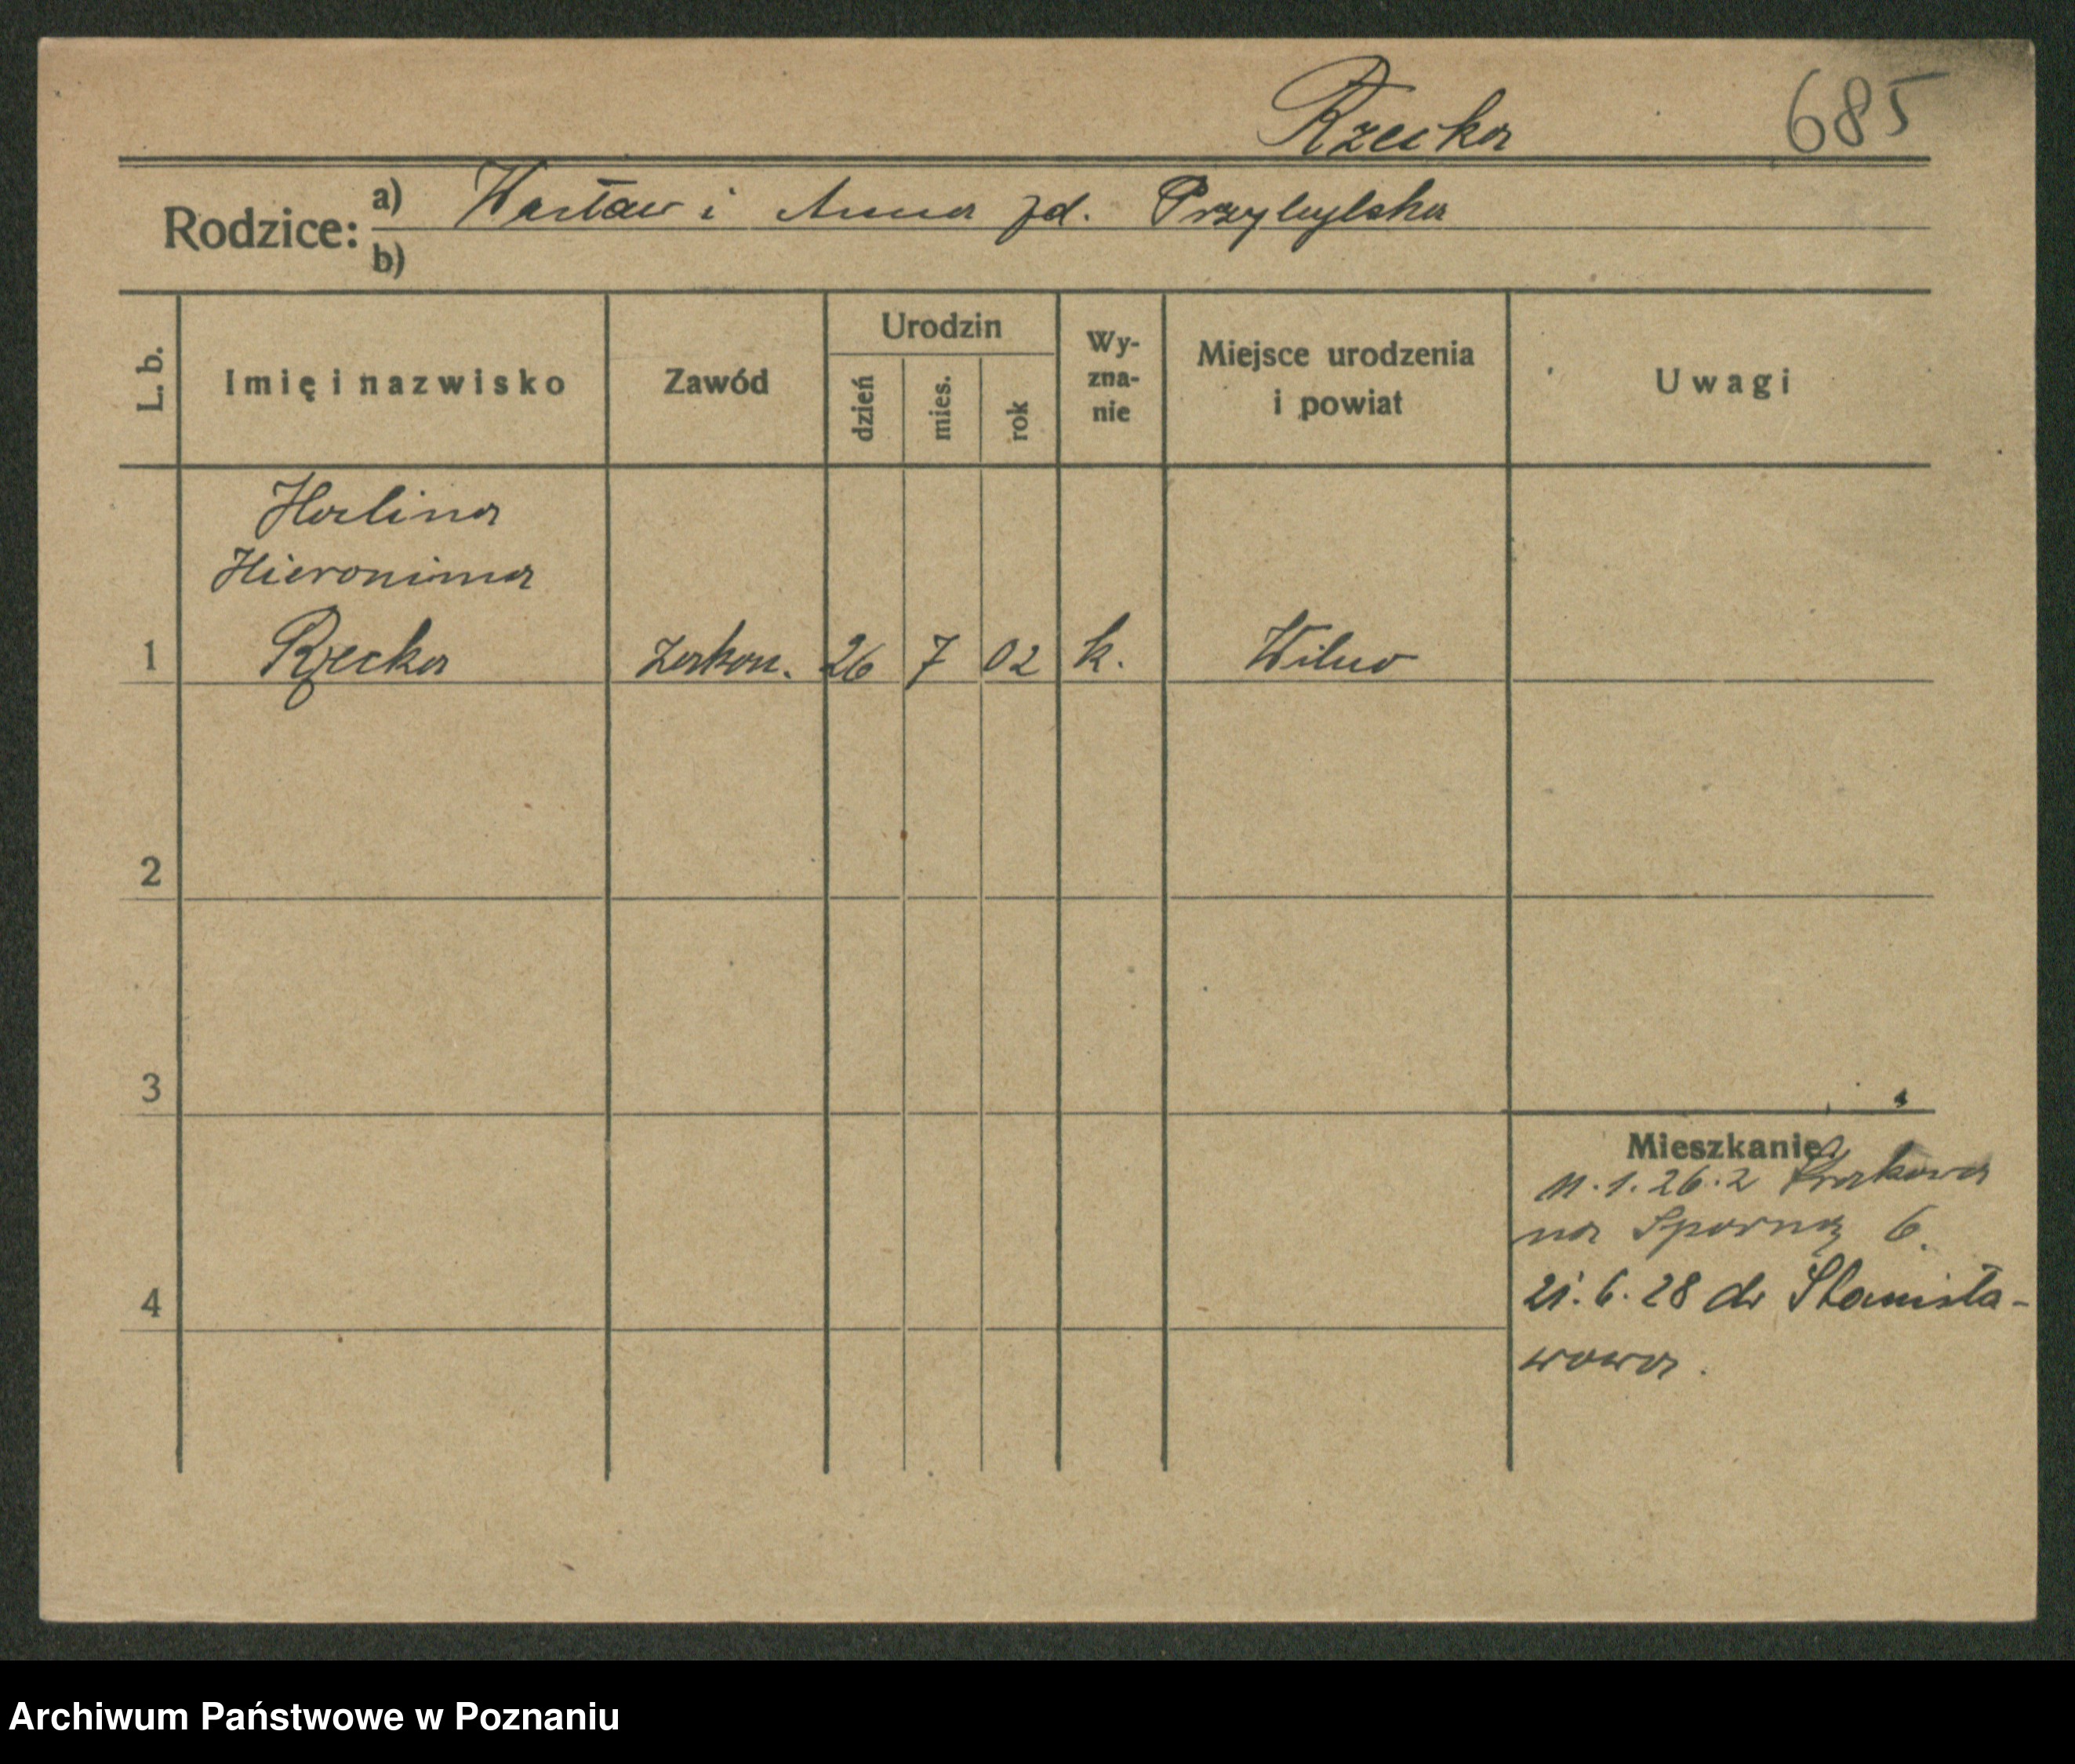 Rzecka 685
Rodzice: a) Wacław i Anna zd. Przybylska
b)
L. b. Imię i nazwisko Zawód Urodzin dzień mies. rok Wy-zna-nie Miejsce urodzenia i powiat Uwagi
Halina
Hieronima
1 Rzecka zakon. 26 7 02 k. Wilno
2
3
Mieszkanie:
11.1.26. z Krakowa
na Sporną 6.
4 21.6.28 do Stanisła-
wowa.
Archiwum Państwowe w Poznaniu